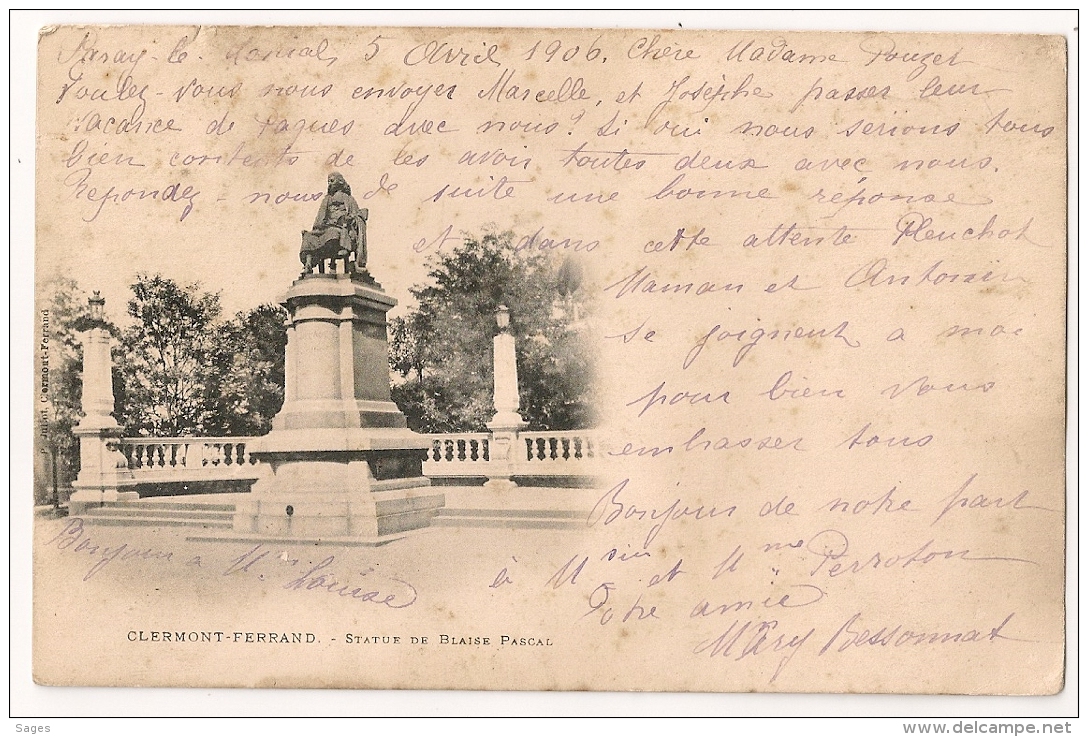 Paray-le-Monial, 5 Avril 1906. Chère Madame Pouzet
Voulez-vous nous envoyer Marcelle, et Josèphe passer leur
vacance de Paques avec nous? Si oui nous serions tous
bien contents de les avoir toutes deux avec nous.
Repondez-nous de suite une bonne réponse
et dans cette attente Pleuchot
Maman et Antoinin
se joignent a moi
pour bien vous
embrasser tous
Bonjour de notre part
à Msin et Mme Perroton
Votre amie
Mary Bessonnat
Bonjour a M. Louise
CLERMONT-FERRAND. - STATUE DE BLAISE PASCAL
Clermont-Ferrand
Sages
www.delcampe.net